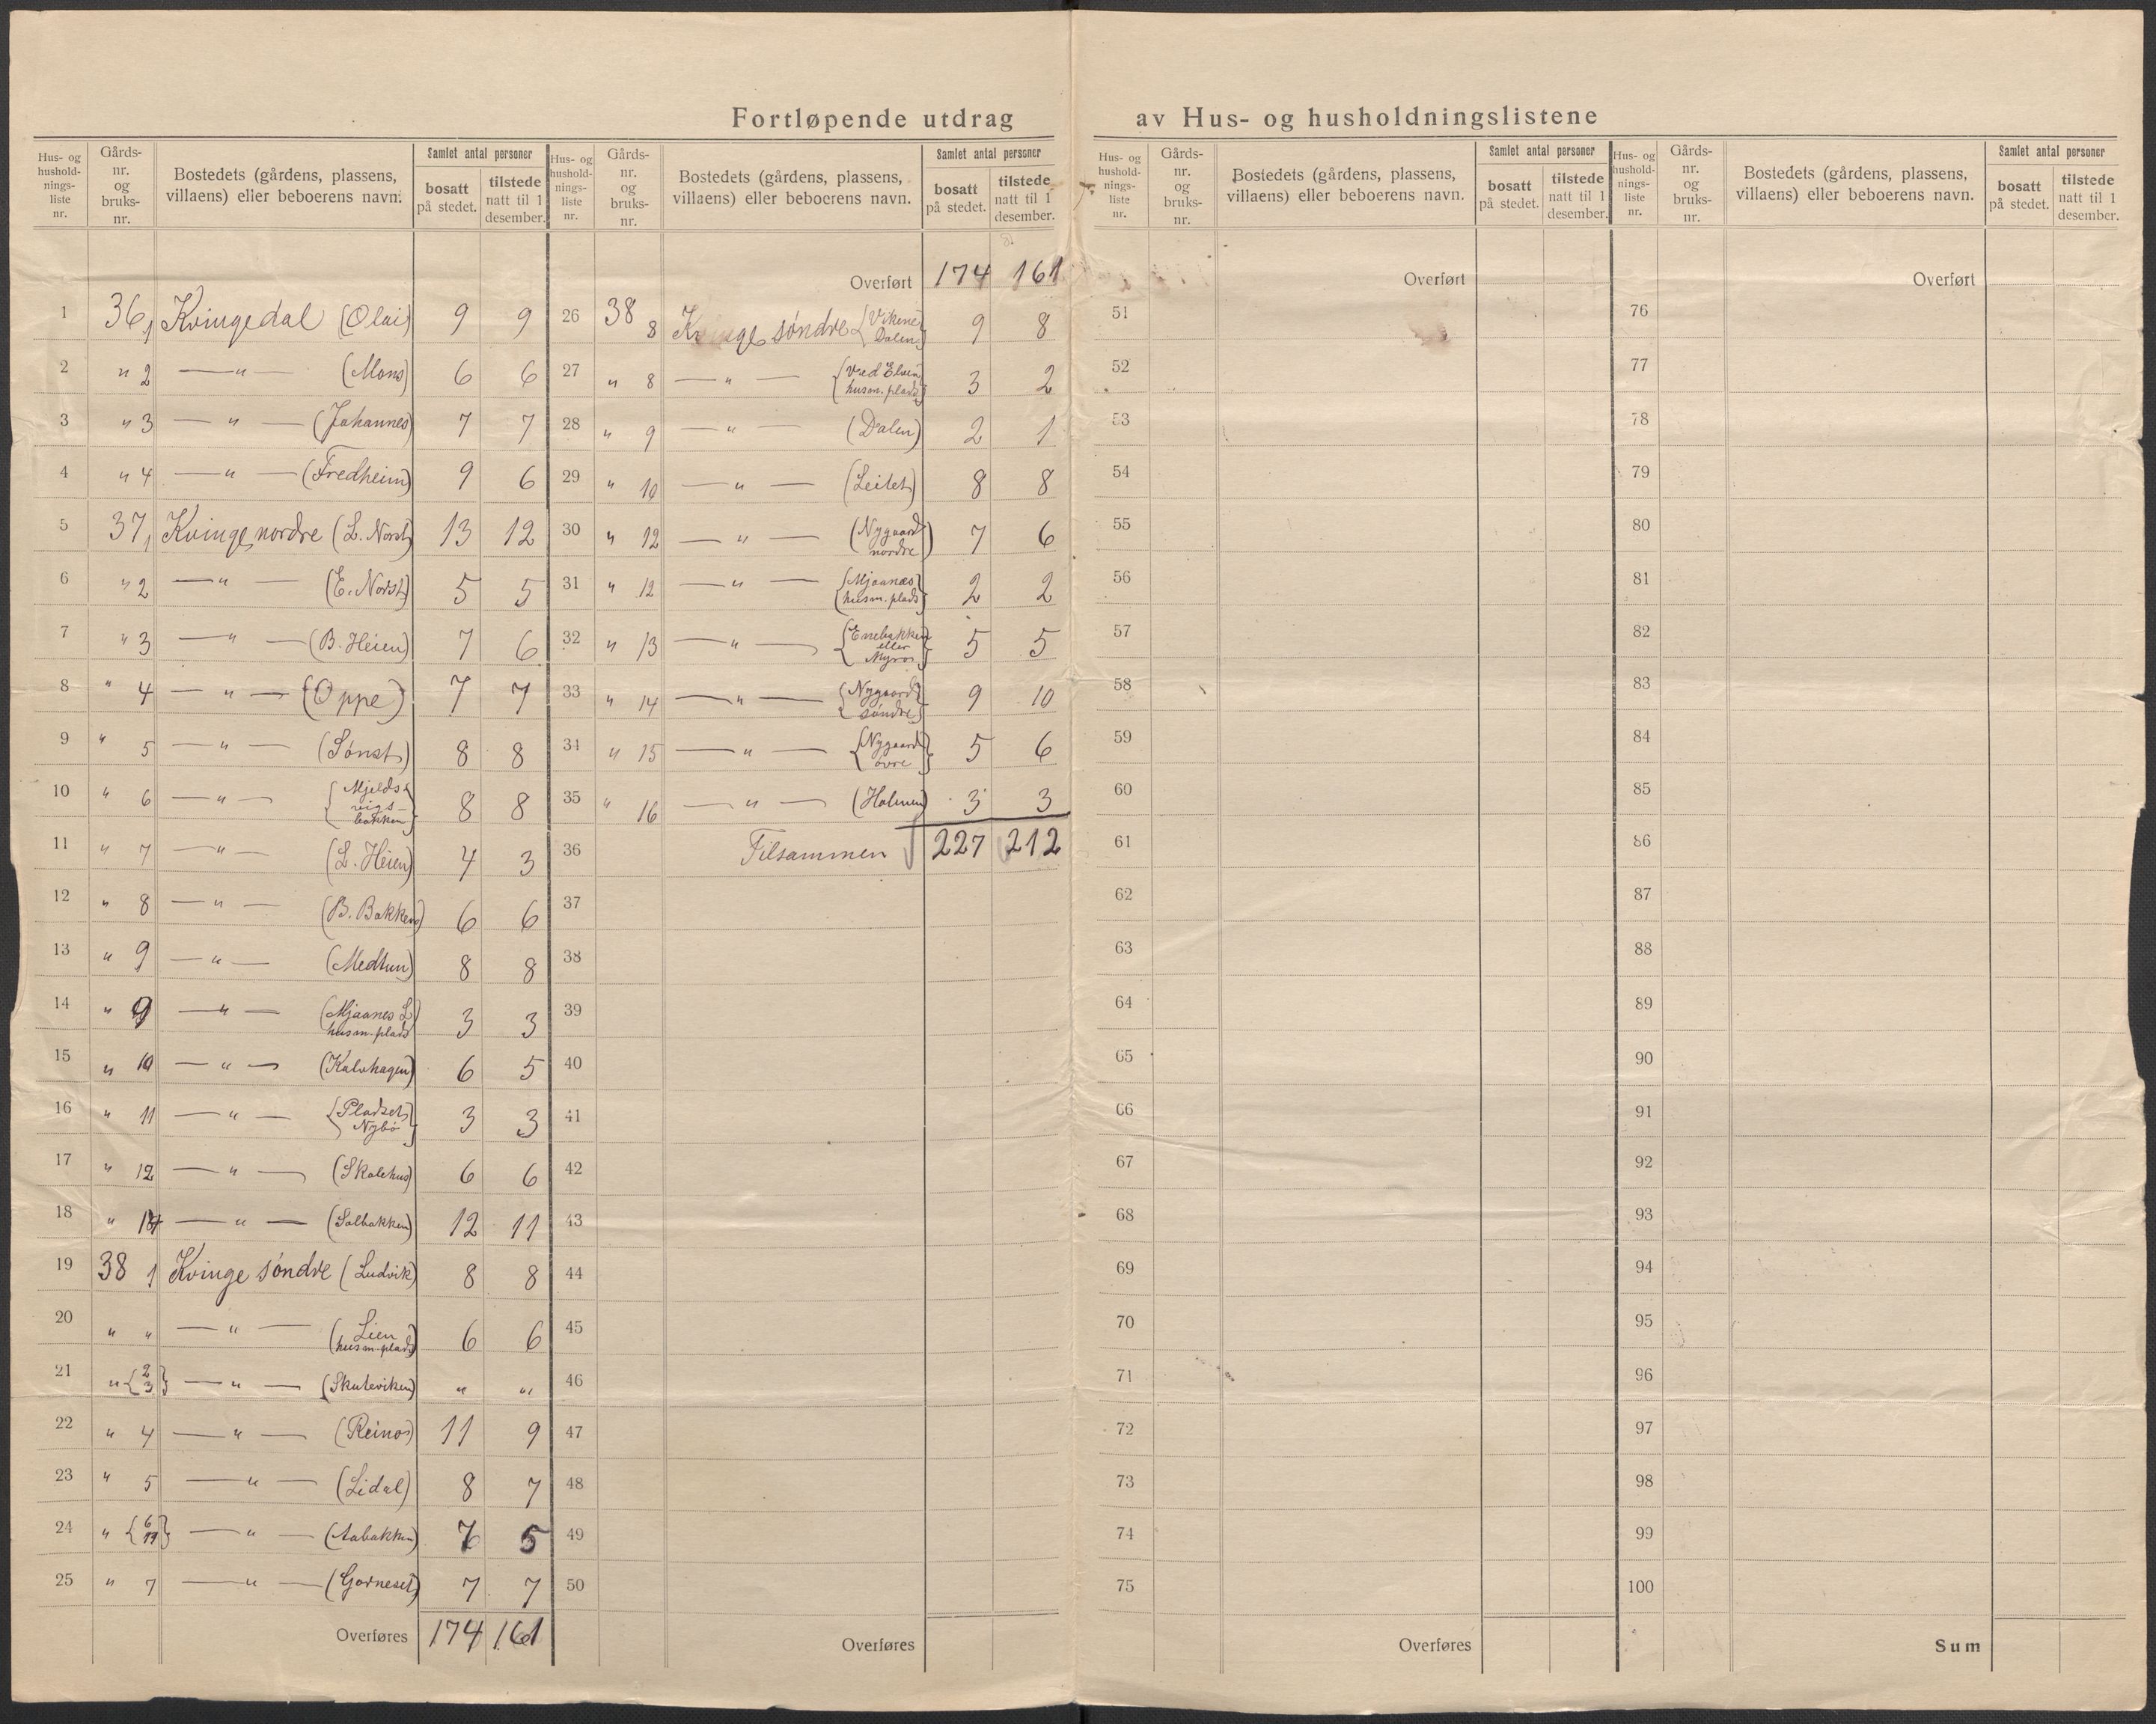 Fortløpende utdrag av Hus- og husholdningslistene
Hus- og hushold- nings- liste nr. | Gårds- nr. og bruks- nr. | Bostedets (gårdens, plassens, villaens) eller beboerens navn. | Samlet antal personer | bosatt på stedet. | tilstede natt til 1 desember.
1 | 36, 1 | Kvingedal (Olai) | 9 | 9
2 | " 2 | — " — (Mons) | 6 | 6
3 | " 3 | — " — (Johannes) | 7 | 7
4 | " 4 | — " — (Fredheim) | 9 | 6
5 | 37, 1 | Kvinge nordre (L. Norst) | 13 | 12
6 | " 2 | — " — (E. Norst) | 5 | 5
7 | " 3 | — " — (B. Heien) | 7 | 6
8 | " 4 | — " — (Oppe) | 7 | 7
9 | " 5 | — " — (Sønst) | 8 | 8
10 | " 6 | — " — {Mjelds- vigs- bakken} | 8 | 8
11 | " 7 | — " — (L. Heien) | 4 | 3
12 | " 8 | — " — (B. Bakken) | 6 | 6
13 | " 9 | — " — (Medtun) | 8 | 8
14 | " 9 | — " — (Mjaanes L husm. plads) | 3 | 3
15 | " 10 | — " — (Kalvhagen) | 6 | 5
16 | " 11 | — " — {Pladset Nybø} | 3 | 3
17 | " 12 | — " — (Skolehus) | 6 | 6
18 | " | — " — (Solbakken) | 12 | 11
19 | 38 1 | Kvinge søndre (Ludvik) | 8 | 8
20 | " " | — " — (Lien husm. plads) | 6 | 6
21 | " {2 3} | — " — (Skuteviken) | " | "
22 | " 4 | — " — (Reinos) | 11 | 9
23 | " 5 | — " — (Lidal) | 8 | 7
24 | " {6 11} | — " — (Aabakken) | | 5
25 | " 7 | — " — (Gorneset) | 7 | 7
Overføres | 174 | 161
Hus- og hushold- nings- liste nr. | Gårds- nr. og bruks- nr. | Bostedets (gårdens, plassens, villaens) eller beboerens navn. | Samlet antal personer | bosatt på stedet. | tilstede natt til 1 desember.
Overført | 174 | 161
26 | 38 8 | søndre {Vikene Dalen} | 9 | 8
27 | " 8 | — " — {Ved Elven husm. plads} | 3 | 2
28 | " 9 | — " — (Dalen) | 2 | 1
29 | " 10 | — " — (Leitet) | 8 | 8
30 | " 12 | — " — (Nygaard nordre) | 7 | 6
31 | " 12 | — " — {Mjaanæs husm. plads} | 2 | 2
32 | " 13 | — " — {Enebakken eller Myros} | 5 | 5
33 | " 14 | — " — {Nygaard søndre} | 9 | 10
34 | " 15 | — " — {Nygaard øvre} | 5 | 6
35 | " 16 | — " — (Holmen) | 3 | 3
36 | Tilsammen | 227 | 212
37
38
39
40
41
42
43
44
45
46
47
48
49
50
Overføres
Hus- og hushold- nings- liste nr. | Gårds- nr. og bruks- nr. | Bostedets (gårdens, plassens, villaens) eller beboerens navn. | Samlet antal personer | bosatt på stedet. | tilstede natt til 1 desember.
Overført
51
52
53
54
55
56
57
58
59
60
61
62
63
64
65
66
67
68
69
70
71
72
73
74
75
Overføres
Hus- og hushold- nings- liste nr. | Gårds- nr. og bruks- nr. | Bostedets (gårdens, plassens, villaens) eller beboerens navn. | Samlet antal personer | bosatt på stedet. | tilstede natt til 1 desember.
Overført
76
77
78
79
80
81
82
83
84
85
86
87
88
89
90
91
92
93
94
95
96
97
98
99
100
Sum